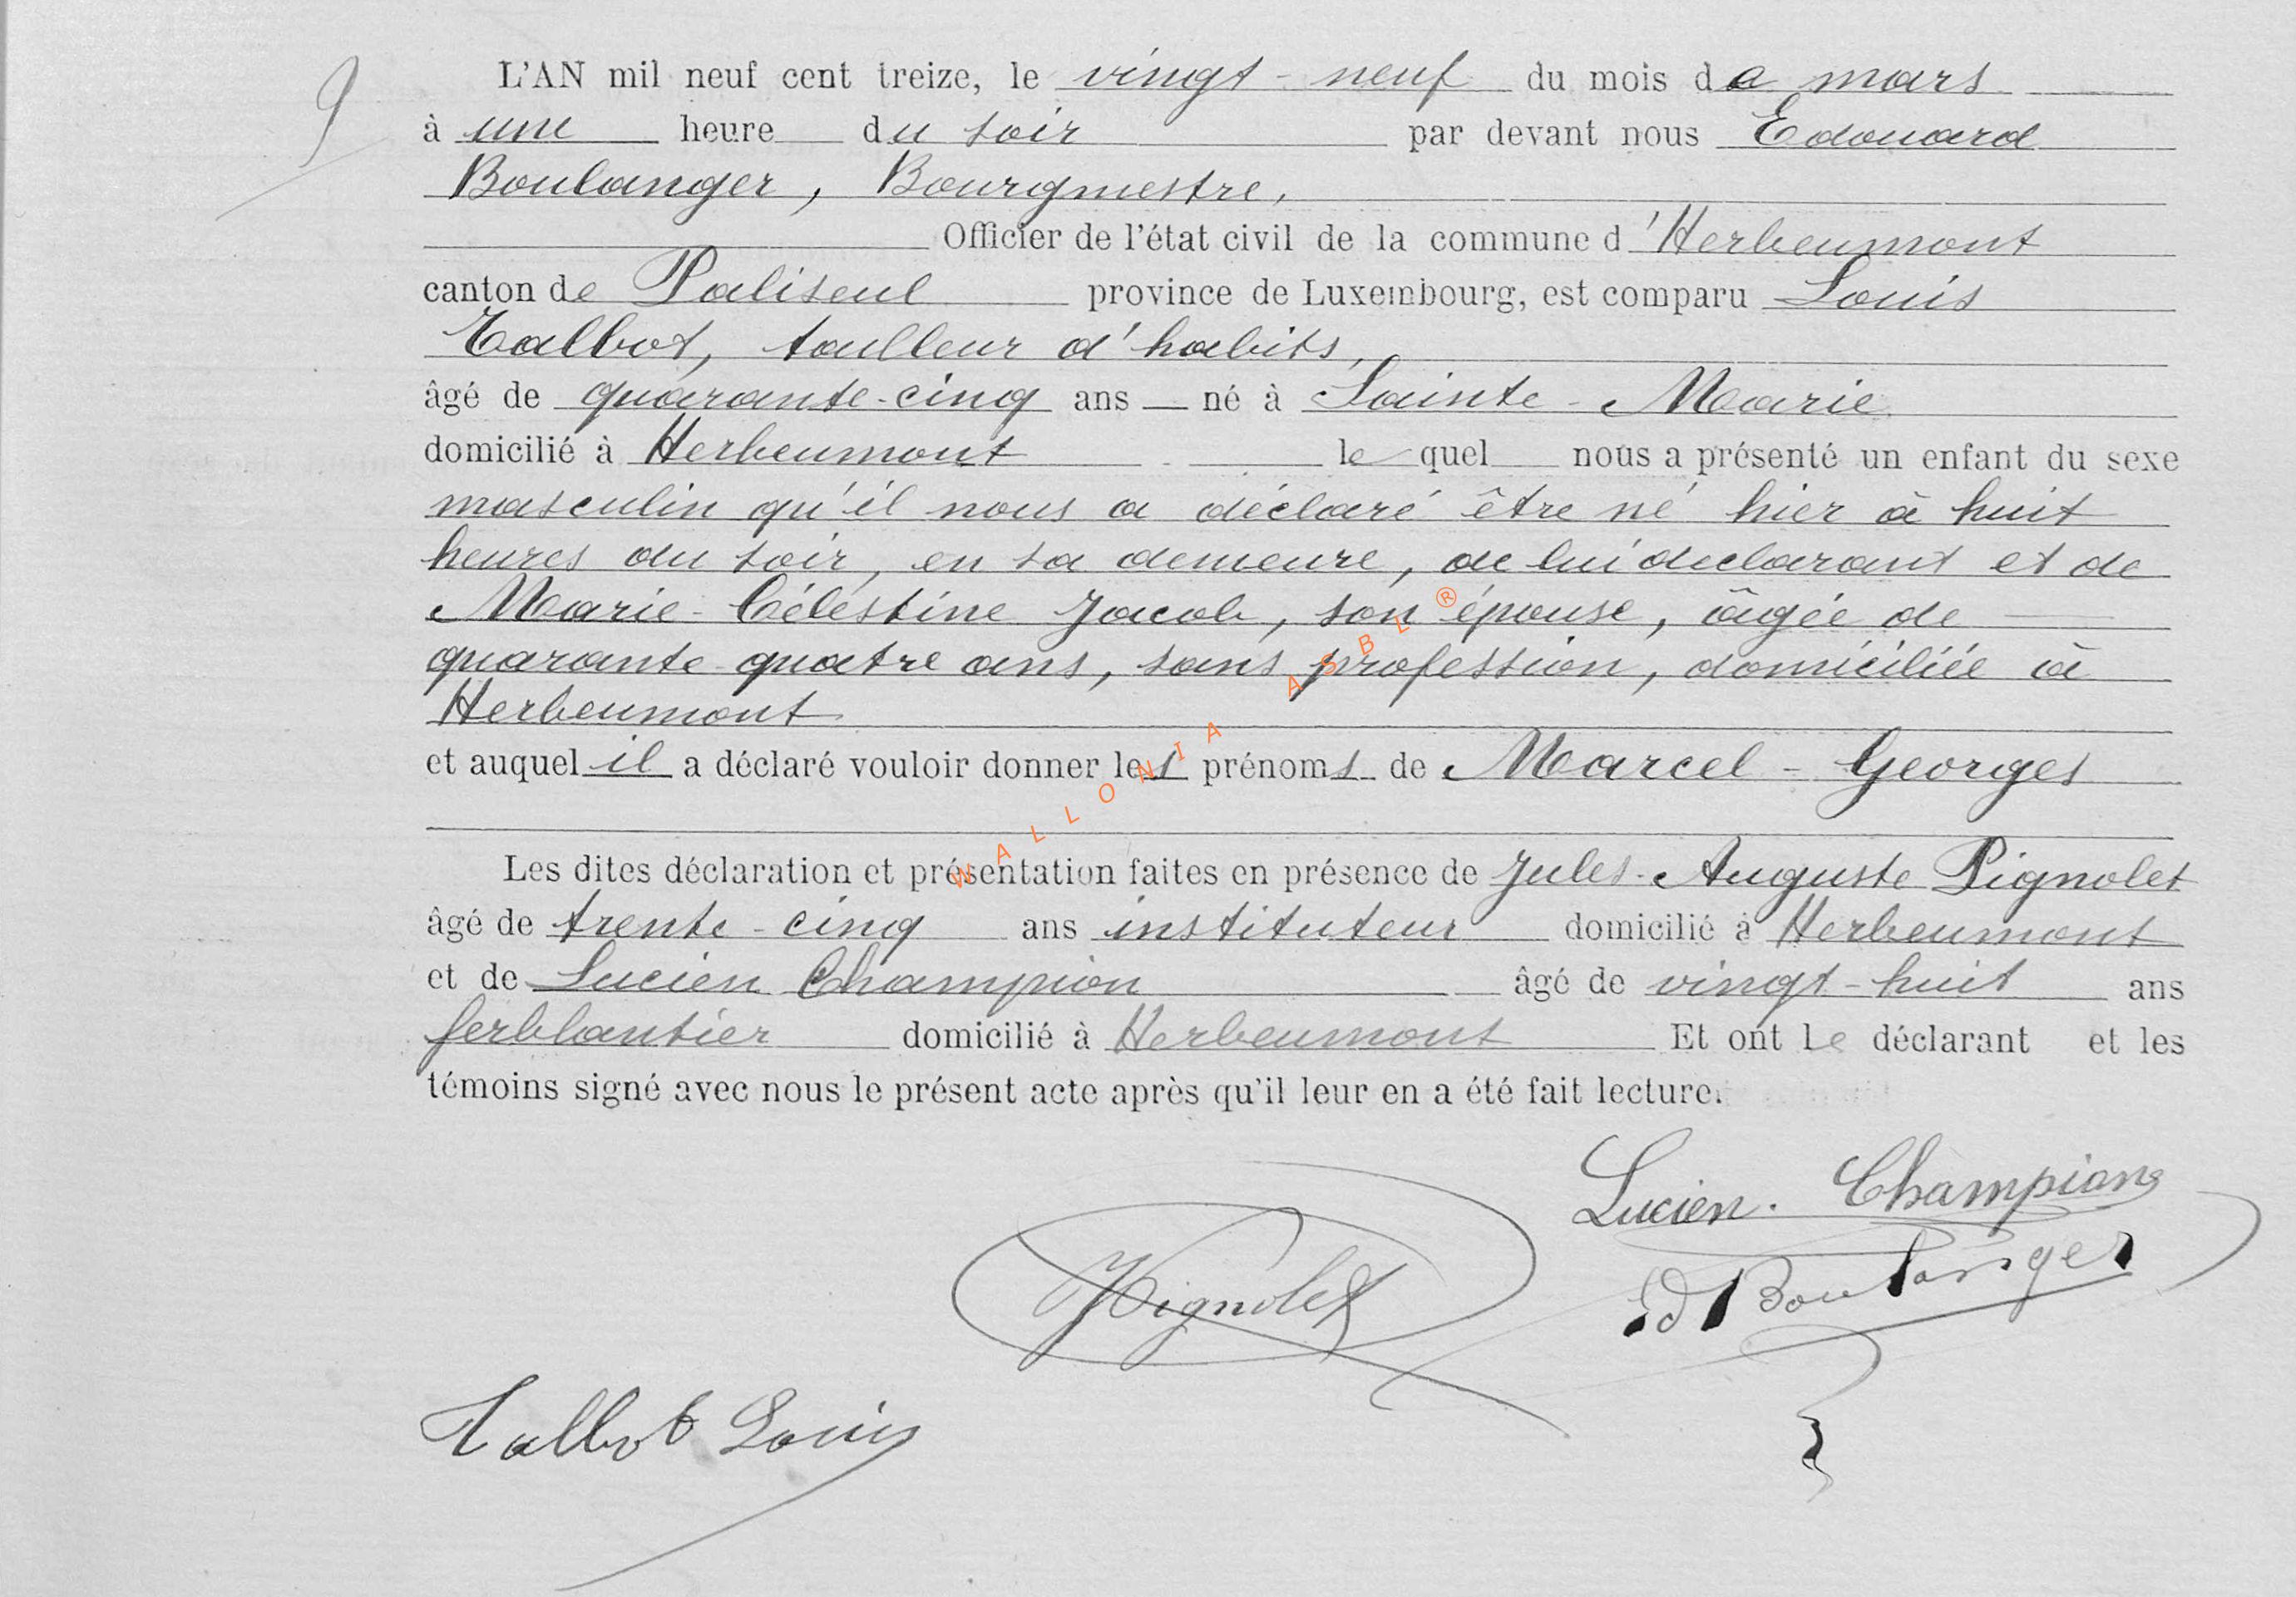 9
L'AN mil neuf cent treize, le vingt-neuf du mois de mars
à une heure du soir par devant nous Edouard
Boulanger, Bourgmestre,
Officier de l'état civil de la commune d'Herbeumont
canton de Paliseul province de Luxembourg, est comparu Louis
Talbot, tailleur d'habits,
âgé de quarante-cinq ans né à Sainte-Marie
domicilié à Herbeumont lequel nous a présenté un enfant du sexe
masculin qu'il nous a déclaré être né hier à huit
heures du soir, en sa demeure, de lui déclarant et de
Marie-Célestine Jacob, son épouse, âgée de
quarante-quatre ans, sans profession, domiciliée à
Herbeumont
et auquel il a déclaré vouloir donner les prénoms de Marcel-Georges
Les dites déclaration et présentation faites en présence de Jules-Auguste Pignolet
âgé de trente-cinq ans instituteur domicilié à Herbeumont
et de Lucien Champion âgé de vingt-huit ans
ferblantier domicilié à Herbeumont Et ont le déclarant et les
témoins signé avec nous le présent acte après qu'il leur en a été fait lecture.
Lucien. Champion
JPignolet
Ed Boulanger
Talbot Louis
WALLONIA ASBL ®